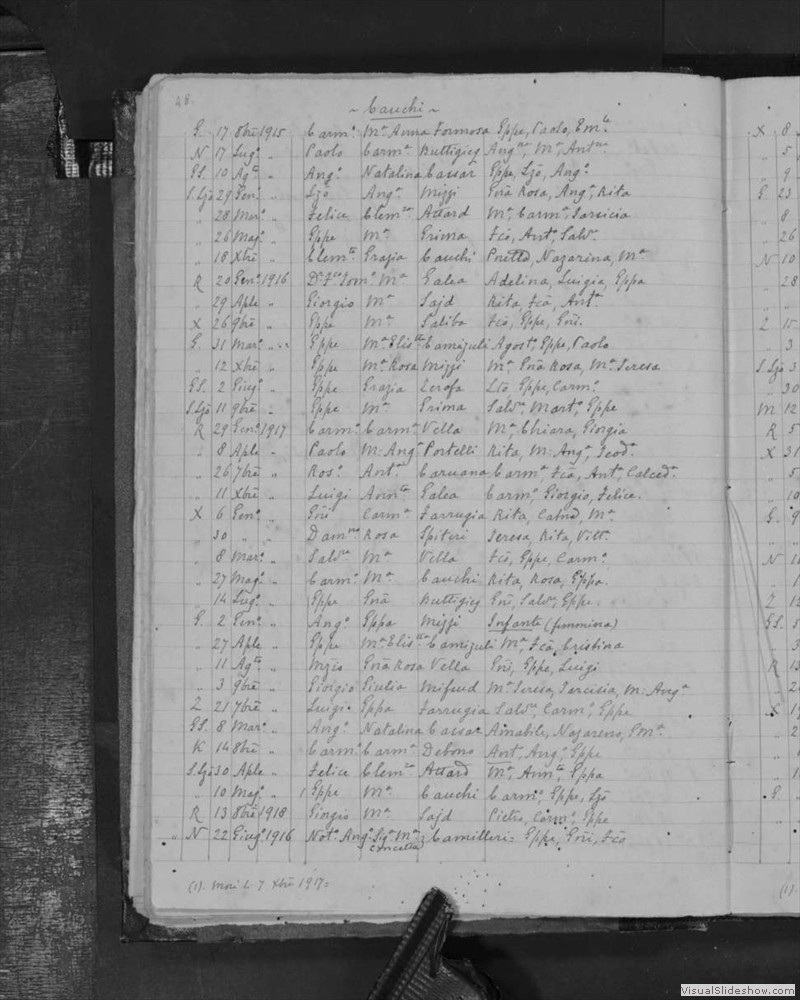 48.
~ Cauchi ~
G. 17 8bre 1915 Carmo. Ma. Anna Formosa Gppe, Paolo, Emla.
N 17 Lugo. " Paolo Carma. Buttigieg Angna, Ma. Antna
GS. 10 Agto. " Ango. Natalina Cassar Gppe, Ljo, Ango.
S.Ljo 29 Geno. " Ljo Anga. Mizzi Gna Rosa, Anga. Rita
" 28 Maro. " Felice Clemna Attard Ma. Carma. Tarsicia
" 26 Mago. " Gppe Ma. Grima Fco, Anto. Salvo.
" 18 Xbre " Clemte Grazia Cauchi Nazarena, Ma.
R 20 Geno. 1916 Dr. Ma. Galea Adelina, Luigia, Gppa
" 29 Aple " Giorgio Ma. Sajd Rita, Fca, Anta.
X 26 9bre " Gppe Ma. Saliba Fco, Gppe, Gni.
G. 31 Maro. " Gppe Ma. Elista Camizuli Agosto. Gppe, Paolo
" 12 Xbre " Gppe Ma. Rosa Mizzi Ma. Gna Rosa, Ma. Teresa
GS. 2 Giugo. " Gppe Grazia Zerafa Gppe, Carmo.
S.Ljo 11 9bre " Gppe Ma. Grima Salvo. Marto. Gppe
R 29 Geno. 1917 Carmo. Carma. Vella Ma. Chiara, Giorgia
" 8 Aple " Paolo M: Anga. Portelli Rita, M: Anga. Teoda.
" 26 7bre " Roso. Antna Caruana Carma. Fca, Anta. Calceda.
" 11 Xbre " Luigi Annta Galea Carmo. Giorgio, Felice.
X 6 Geno. " Gni Carma. Farrugia Rita, Catna, Ma.
" 30 " " Damno Rosa Spiteri Teresa, Rita, Vitt.
" 8 Maro. " Salvre Ma. Vella Fco, Gppe, Carmo.
" 27 Mago. " Carmo. Ma. Cauchi Rita, Rosa, Gppa.
" 14 Lugo. " Gppe Gna Buttigieg Gni, Salvo. Gppe.
G. 2 Geno. " Ango. Gppa Mizzi Infante (femminea)
" 27 Aple " Gppe Ma. Elista Camizuli Ma. Fca, Cristina
" 11 Agto. " Mzio Gna Rosa Vella Gni, Gppe, Luigi
" 3 9bre " Giorgio Giulia Mifsud Ma. Teresa, Tercisia, M: Anga
Z 21 7bre " Luigi Gppa Farrugia Salvo. Carmo. Gppe
GS. 8 Maro. " Ango. Natalina Cassar Amabile, Nazareno, Ema.
K 14 8bre " Carmo. Carma. Debono Anto. Ango. Gppe
S.Ljo 30 Aple " Felice Clemna Attard Ma. Annta Gppa
" 10 Mago. " 1 Gppe Ma. Cauchi Carmo. Gppe, Ljo
R 13 8bre 1918 Giorgio Ma. Sajd Pietro, Carmo. Gppe
" N 22 Giugo. 1916 Not. Ango. Siga. Ma. Concetta Camilleri = Gppe, Gni, Fco
(1). Morì li 7 Xbre 1917=
X 8
" 5
" 9
G 23
" 8
" 26
N 10
" 28
Z 15
" 3
S.Ljo 3
" 30
M 12
R 5
X 31
" 5
" 10
G. 9
Z 12
GS. 5
R 13
G.
(1).
VisualSlideshow.com